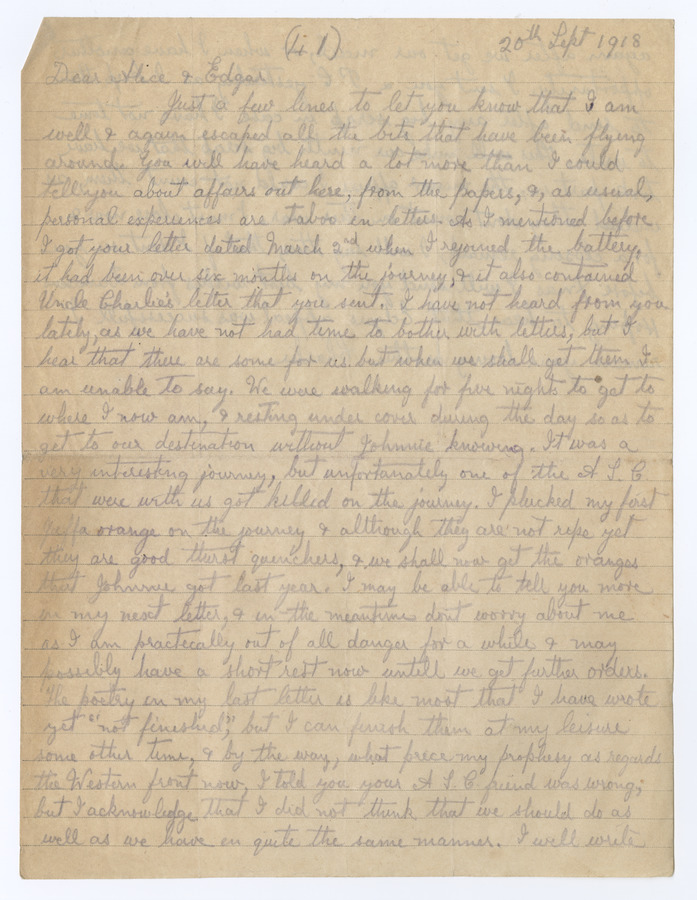 (Li 1)
20th Sept 1918
Dear Alice & Edgar
Just a few lines to let you know that I am
well & again escaped all the bits that have been flying
around. You will have heard a lot more than I could
tell you about affairs out here, from the papers, &, as usual,
personal experiences are taboo in letters. As I mentioned before
I got your letter dated March 2nd when I rejoined the battery,
it had been over six months on the journey, & it also contained
Uncle Charlie's letter that you sent. I have not heard from you
lately, as we have not had time to bother with letters, but I
hear that there are some for us but when we shall get them I
am unable to say. We were walking for five nights to get to
where I now am, & resting under cover during the day so as to
get to our destination without Johnnie knowing. It was a
very interesting journey, but unfortunately one of the A S. C.
that were with us got killed on the journey. I plucked my first
Jaffa orange on the journey & although they are not ripe yet
they are good thirst quenchers, & we shall now get the oranges
that Johnnie got last year. I may be able to tell you more
in my next letter, & in the meantime dont worry about me
as I am practically out of all danger for a while & may
possibly have a short rest now untill we get further orders.
The poetry in my last letter is like most that I have wrote
yet "not finished," but I can finish them at my leisure
some other time, & by the way, what price my prophesy as regards
the Western front now, I told you your A S. C friend was wrong;
but I acknowledge that I did not think that we should do as
well as we have in quite the same manner. I will write